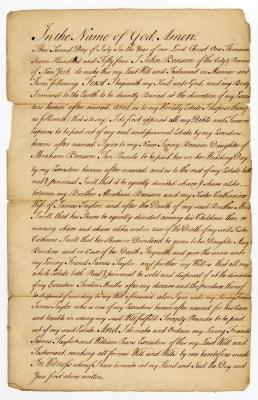 In the Name of God, Amen.
This Second Day of July In the Year of our Lord Christ One Thousand
Seven Hundred and Fifty four I John Benson of the City & Province
of New York do make this my Last Will and Testament in Manner and
Form following First I bequeath my Soul unto God, and my Body
I commit to the Earth to be decently Buried at the discretion of my Executors
herein after named, and as to my Worldly Estate I dispose thereof
as followeth that is to say I do first appoint all my Debts and Funeral
Expences to be paid out of my real and personal Estate by my Executors
herein after named I give to my Niece Jenny Benson Daughter of
Abraham Benson Ten Pounds to be paid her on her Wedding Day
by my Executors herein after named, and as to the rest of my Estate both
real & personal I will that it be equally divided share & share alike
between my Brother Abraham Benson and my Sister Catharine
Wife of James Taylor and after the Death of my said Brother
I will that his Share be equally divided among his Children then
share and share alike, and in case of the Death of my said Sister
Catharine I will that his Share or Dividend be given to his Daughter Mary
and in Case of the Death and give the same unto
my Loving Friend James Taylor. And further my Will is that all my
whole Estate both Real & personal be sold and disposed of at the discretion
of my Executors Twelve Months after my decease and the produce thereof
to be disposed according to my Will aforesaid also I give unto my Loving Friend
James Taylor who is one of my Executors herein after named for his Care
and trouble in seeing my said Will fulfilled Twenty Pounds to be paid
out of my said Estate And I do make and Ordain my Loving Friends
James Taylor and William Executors of this my Last Will and
Testament, revoking all former Will and Wills by me heretofore made
In Witness whereof I have hereunto set my Hand and Seal the Day and
Year first above written